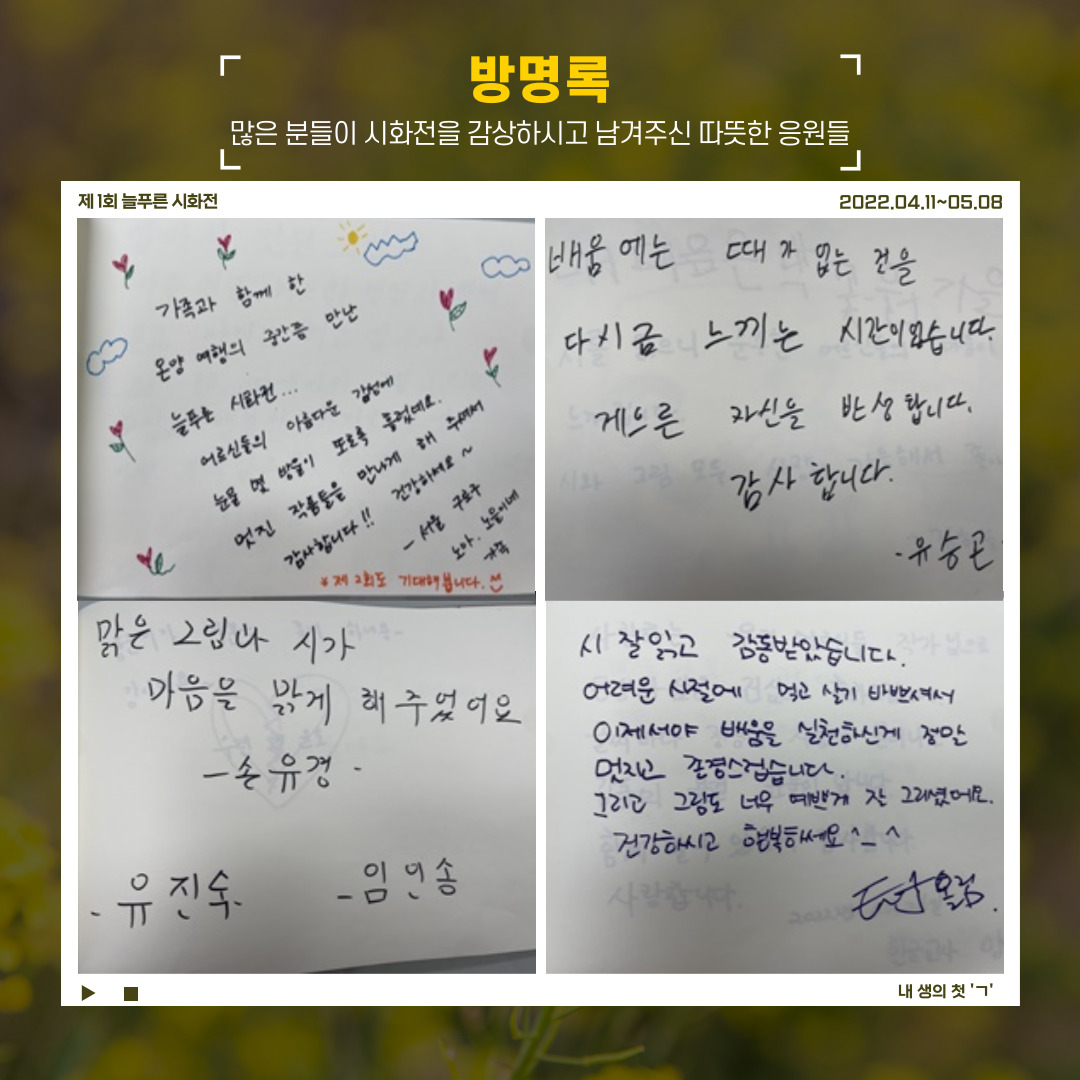 방명록
많은 분들이 시화전을 감상하시고 남겨주신 따뜻한 응원들
제 1회 늘푸른 시화전
2022.04.11~05.08
가족과 함께 한
온양 여행의 중간쯤 만난
늘푸른 시화전...
어르신들의 아름다운 감성에
눈물 몇 방울이 또로록 흘렀네요.
멋진 작품들을 만나게 해 주셔서
감사합니다!! 건강하세요~
- 서울 구로구
노아, 노을이네
가족
* 제 2회도 기대해봅니다.
배움에는 때가 없는 것을
다시금 느끼는 시간이었습니다.
게으른 자신을 반성합니다.
감사합니다.
- 유승곤
맑은 그림과 시가
마음을 맑게 해주었어요
- 손유경 -
- 유진숙.
- 임인송
시 잘 읽고 감동받았습니다.
어려운 시절에 먹고 살기 바쁘셔서
이제서야 배움을 실천하신게 정말
멋지고 존경스럽습니다.
그리고 그림도 너무 예쁘게 잘 그리셨어요.
건강하시고 행복하세요^_^
내 생의 첫 'ㄱ'